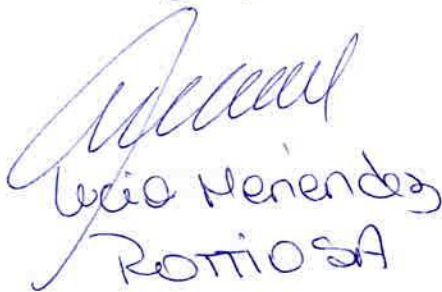 Lucia Menendez
ROTTIOSA